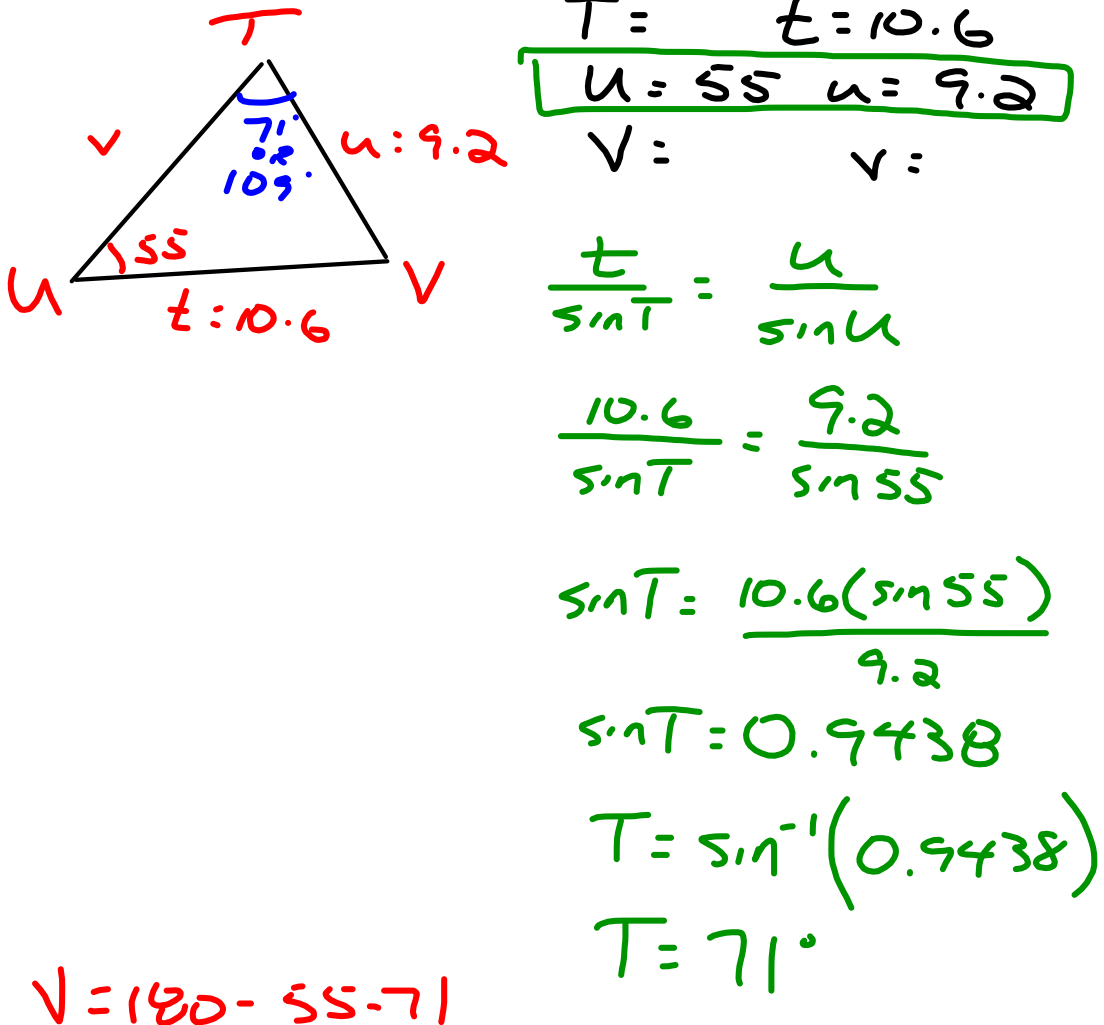 T
v
71°
or
109°
u: 9.2
55
U
V
t: 10.6
T= t= 10.6
U= 55 u= 9.2
V= v=
t/sinT = u/sinU
10.6/sinT = 9.2/sin55
sinT= 10.6(sin55)/9.2
sinT= 0.9438
T= sin⁻¹(0.9438)
T= 71°
V=180-55-71